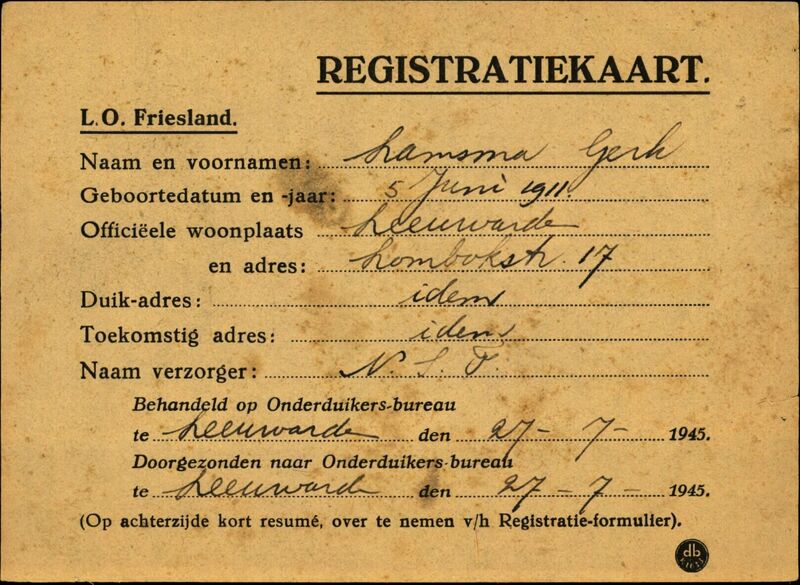 REGISTRATIEKAART.
L.O. Friesland.
Naam en voornamen: Lamsma Gerk
Geboortedatum en -jaar: 5 Juni 1911.
Officiëele woonplaats Leeuwarde
en adres: Lombokstr. 17
Duik-adres: idem
Toekomstig adres: idem
Naam verzorger: N. S. F.
Behandeld op Onderduikers-bureau
te Leeuwarde den 27-7- 1945.
Doorgezonden naar Onderduikers-bureau
te Leeuwarde den 27-7- 1945.
(Op achterzijde kort resumé, over te nemen v/h Registratie-formulier).
db